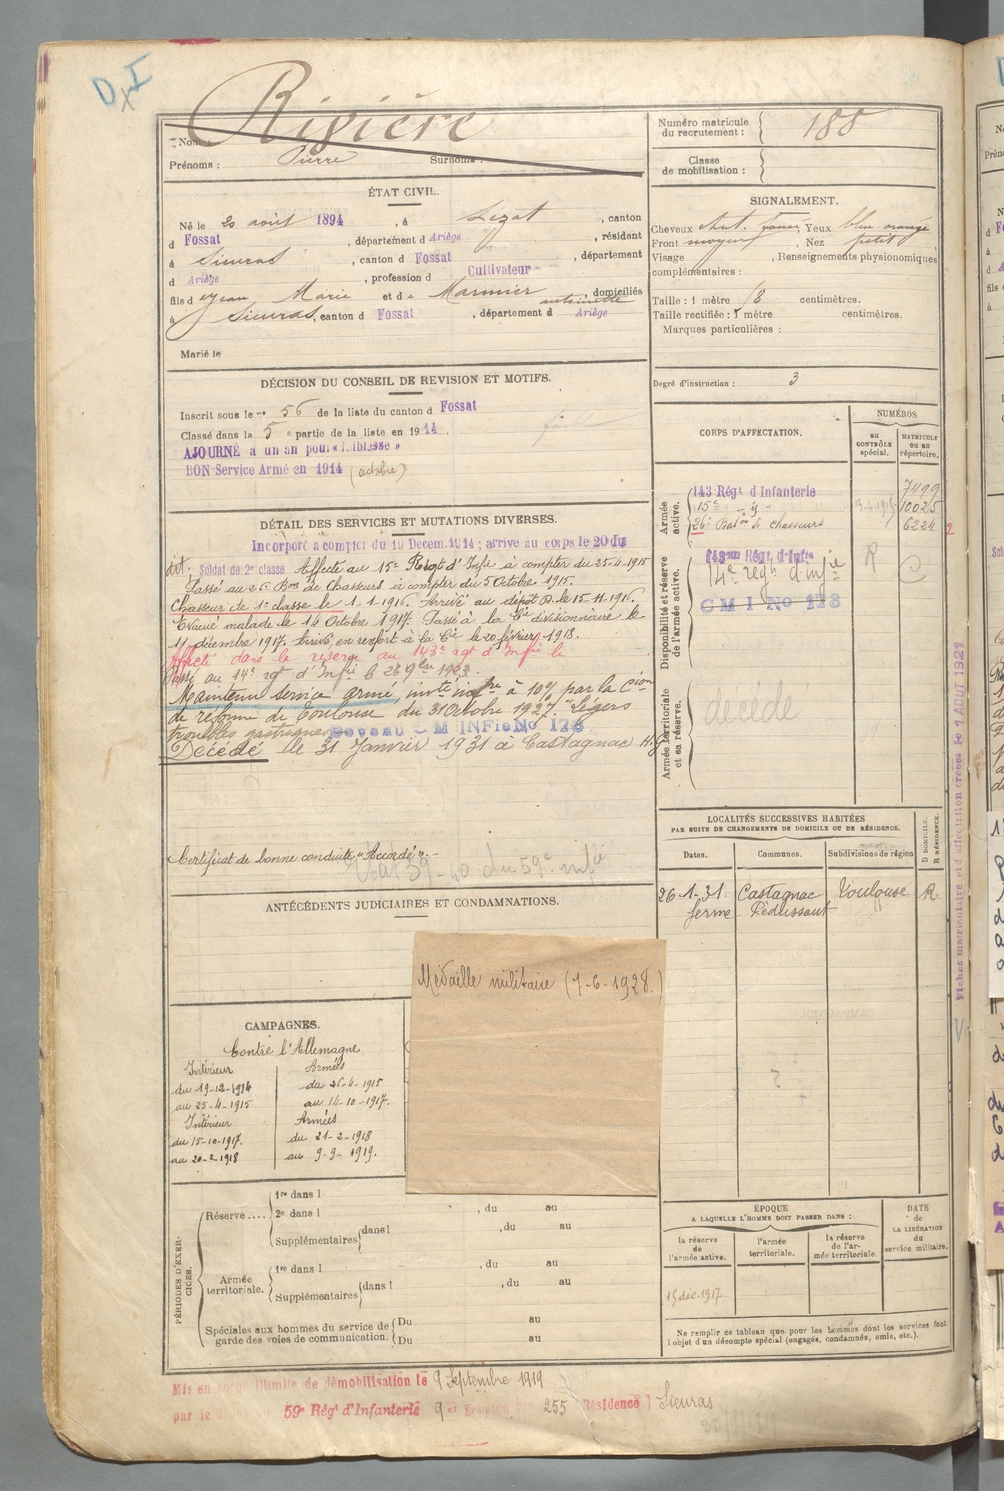 D x I
Rivière
Nom :
Prénoms : Pierre Surnoms :
Numéro matricule
du recrutement : 188
Classe
de mobilisation :
ÉTAT CIVIL.
Né le 20 août 1894, à Lézat, canton
d Fossat, département d Ariège, résidant
à Sieuras, canton d Fossat, département
d Ariège, profession d Cultivateur
fils d e Jean Marie et de Marmier antoinette, domiciliés
à Sieuras, canton d Fossat, département d Ariège
Marié le
SIGNALEMENT.
Cheveux chat. foncé Yeux bleu orangé
Front moyen, Nez petit
Visage , Renseignements physionomiques
complémentaires :
Taille : 1 mètre 18 centimètres.
Taille rectifiée : 1 mètre centimètres.
Marques particulières :
Degré d'instruction : 3
DÉCISION DU CONSEIL DE REVISION ET MOTIFS.
Inscrit sous le n° 56 de la liste du canton d Fossat
Classé dans la 5 e partie de la liste en 1914.
AJOURNÉ à un an pour « faiblesse »
BON Service Armé en 1914 (octobre)
CORPS D'AFFECTATION.
NUMÉROS
AU CONTRÔLE spécial.
MATRICULE OU AU répertoire.
Armée active.
143 Régt d'Infanterie 7499
15e d° 10025
26e Baton de chasseurs 6224
2
Disponibilité et réserve de l'armée active.
143me Régt d'Infie R
14e régt d'infie
C M I No 178
Armée territoriale et sa réserve.
décédé
DÉTAIL DES SERVICES ET MUTATIONS DIVERSES.
Incorporé à compter du 19 Decem. 1914 ; arrivé au corps le 20 du
dit ; Soldat de 2e classe. Affecté au 15e Régt d'Infie à compter du 25-4-1915
Passé au 26e Bon de Chasseurs à compter du 5 Octobre 1915.
Chasseur de 1e classe le 1-1-1916. Arrivé au dépôt D. le 15-11-1916.
Evacué malade le 14 Octobre 1917. Passé à la Cie divisionnaire le
11 décembre 1917. Arrivé en renfort à la Cie le 20 février 1918.
Affecté dans la réserve au 143e rgt d'Infie le
Passé au 14e rgt d'Infie le 26 9bre 1923.
Maintenu service armé, invté infre à 10% par la Cion
de réforme de Toulouse du 31 Octobre 1927. "Légers
troubles gastriques" Devenu C M INFie No 178
Décédé le 31 Janvier 1931 à Castagnac H.G
Certificat de bonne conduite « Accordé » -
59e infie
LOCALITÉS SUCCESSIVES HABITÉES
PAR SUITE DE CHANGEMENTS DE DOMICILE OU DE RÉSIDENCE.
Dates. Communes. Subdivisions de région D DOMICILE. R RÉSIDENCE.
26-1-31 Castagnac Toulouse R
ferme Pédussaut
ANTÉCÉDENTS JUDICIAIRES ET CONDAMNATIONS.
Médaille militaire (7-6-1928.)
CAMPAGNES.
Contre l'Allemagne
Intérieur Armées
du 19-12-1914 du 26-4-1915
au 25-4-1915 au 14-10-1917.
Intérieur Armées
du 15-10-1917. du 21-2-1918
au 20-2-1918 au 9-9-1919.
PÉRIODES D'EXERCICES.
Réserve....
1re dans l
2e dans l , du au
Supplémentaires dans l , du au
Armée territoriale.
1re dans l , du au
Supplémentaires dans l , du au
Spéciales aux hommes du service de garde des voies de communication.
Du au
Du au
ÉPOQUE
A LAQUELLE L'HOMME DOIT PASSER DANS :
la réserve de l'armée active.
l'armée territoriale.
la réserve de l'armée territoriale.
DATE de LA LIBÉRATION du service militaire.
15 déc. 1917
Ne remplir ce tableau que pour les hommes dont les services font
l'objet d'un décompte spécial (engagés, condamnés, omis, etc.).
Fiches matriculaire et d'affectation créées le 1 AOUT 1921
Mis en congé illimité de démobilisation le 9 Septembre 1919
par le dépôt du 59e Régt d'Infanterie 9 e Echelon 255 Résidence ) Sieuras